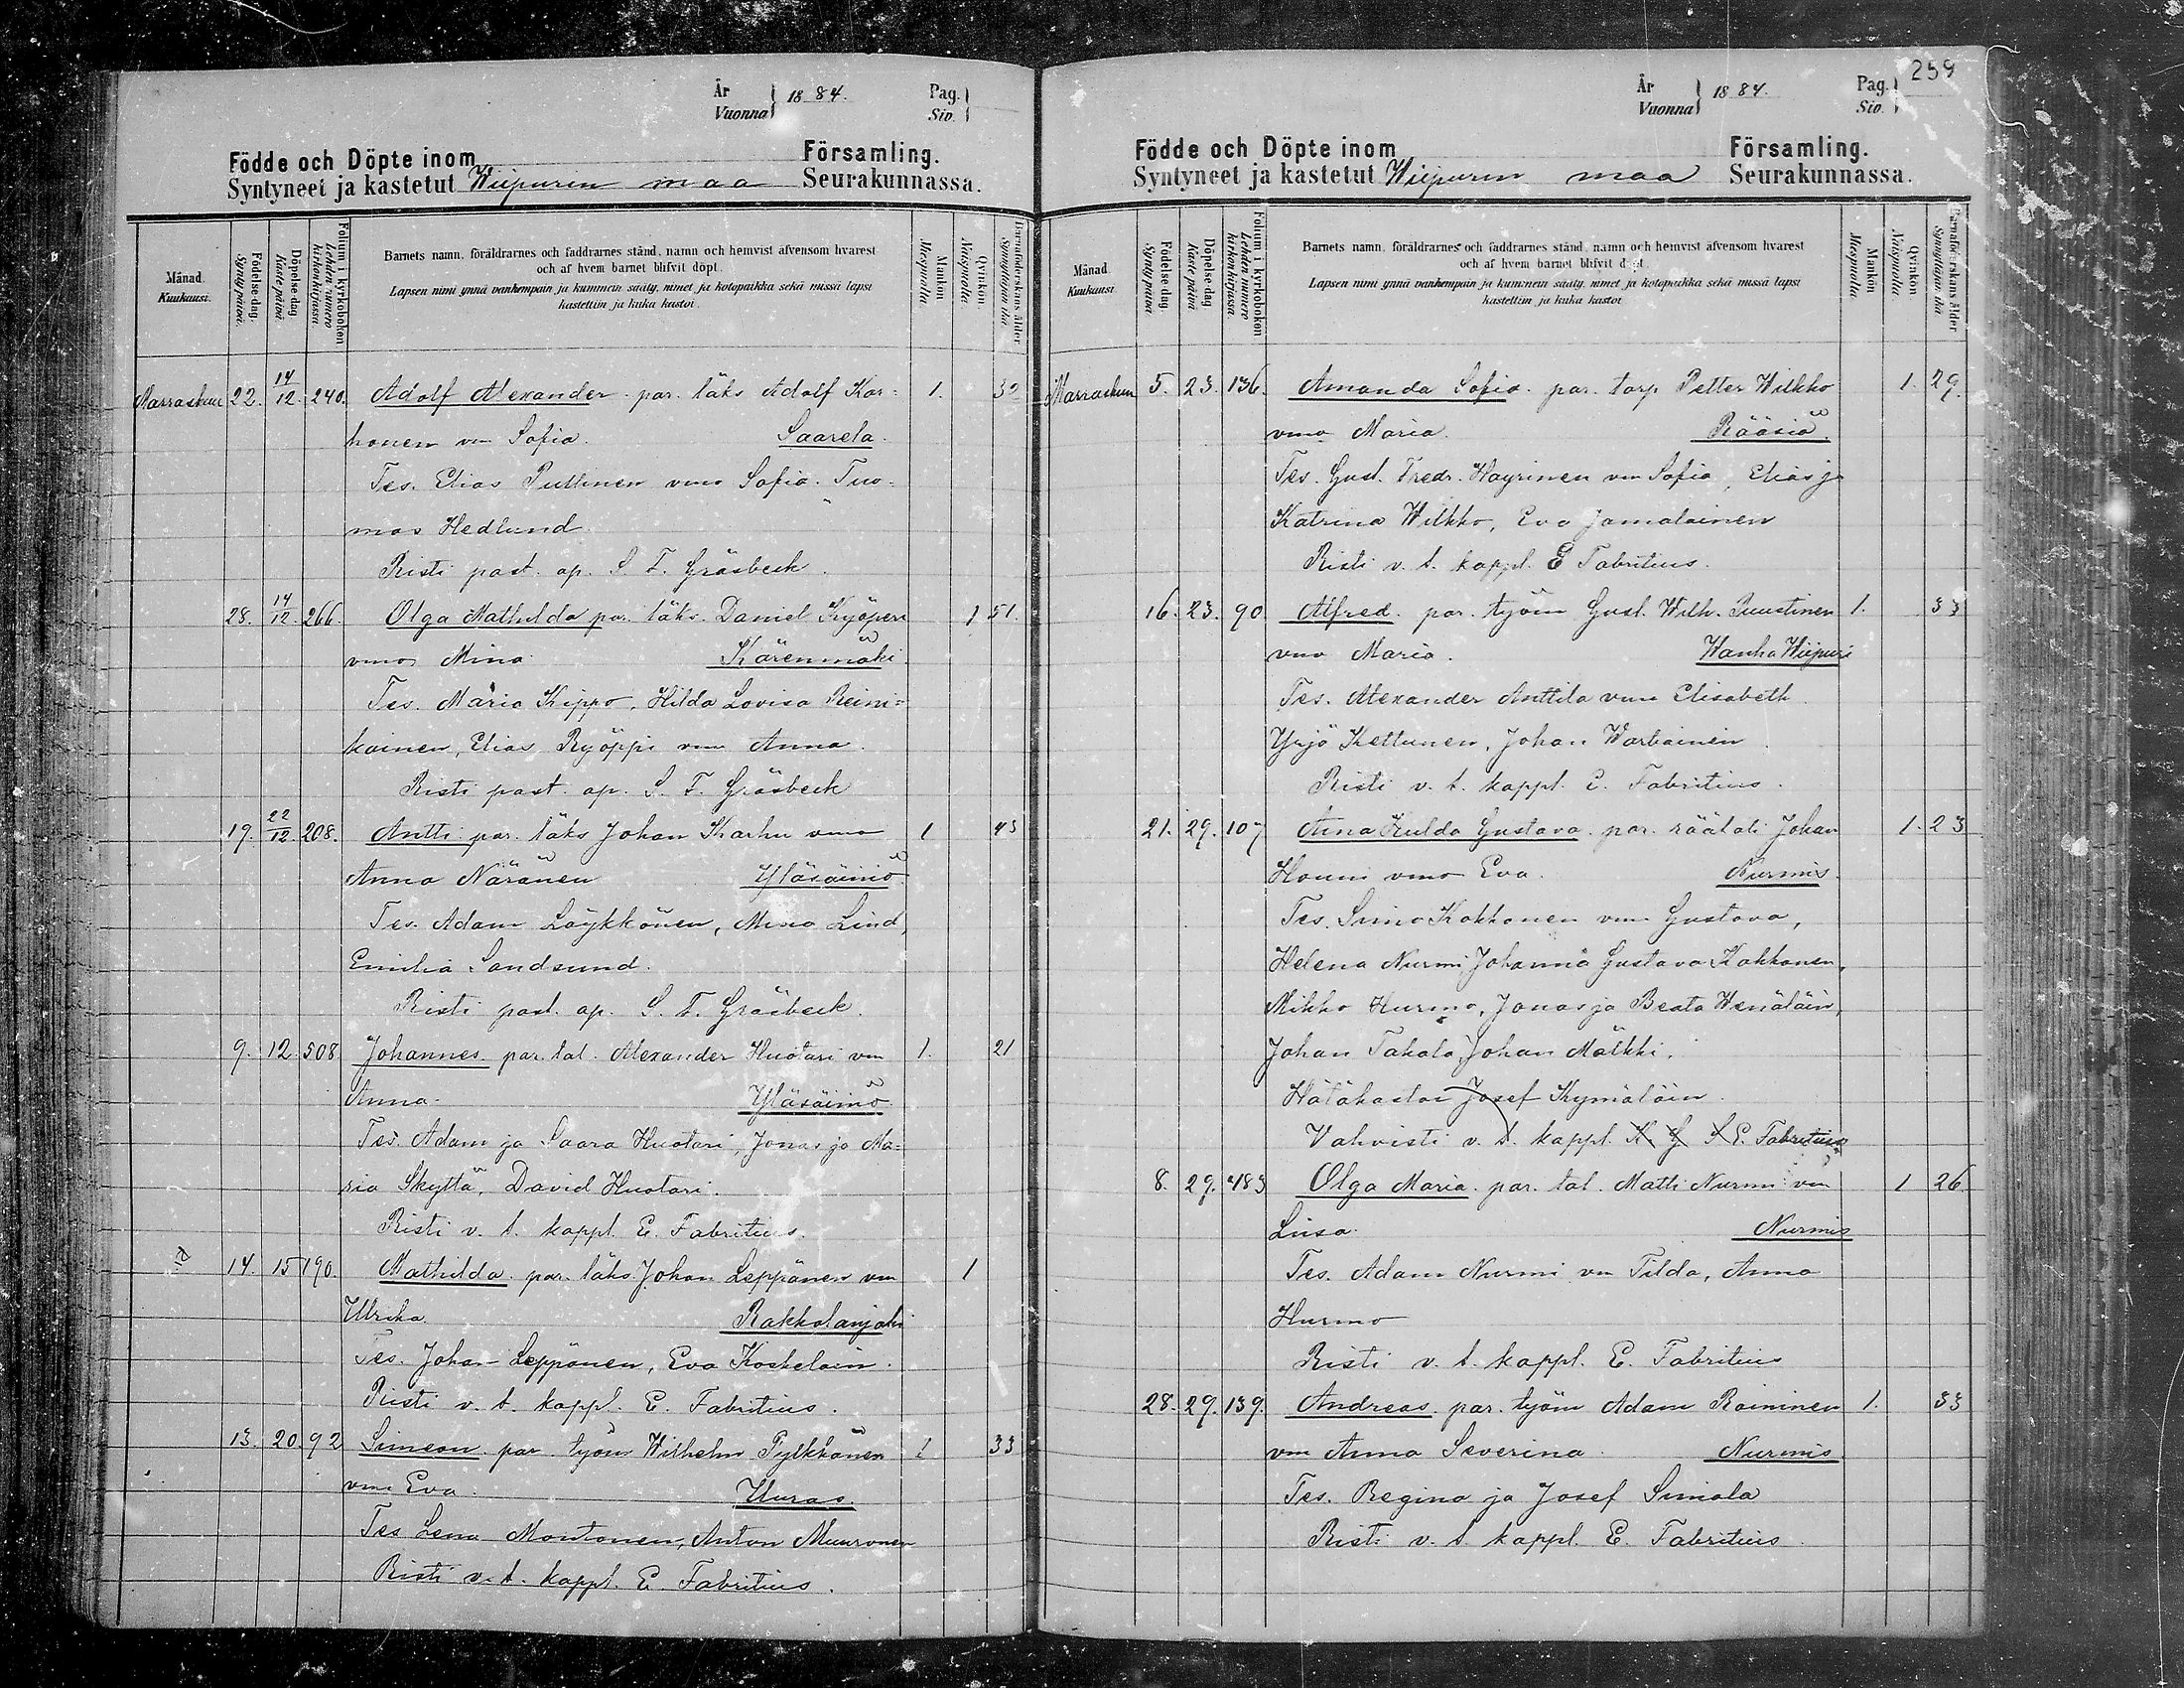 År
Vuonna } 1884.
Pag.
Siv.
Födde och Döpte inom Församling.
Syntyneet ja kastetut Wiipurin maa Seurakunnassa.
Månad.
Kuukausi.
Födelse-dag.
Syntypäivä.
Döpelse-dag.
Kastepäivä.
Folium i kyrkoboken
Lehden numero kirkonkirjassa
Barnets namn, föräldrarnes och faddrarnes stånd, namn och hemvist äfvensom hvarest
och af hvem barnet blifvit döpt.
Lapsen nimi ynnä vanhempain ja kummein sääty, nimet ja kotopaikka sekä missä lapsi
kastettiin ja kuka kastoi.
Mankön.
Miespuolia.
Qvinkön.
Naispuolia.
Barnaföderskans ålder
Synnyttäjän ikä
Marraskuu 22. 14/12. 240. Adolf Alexander. par. läks Adolf Kar= 1. 32
honen vm Sofia. Saarela.
Tes. Elias Pullinen vmo Sofia. Tuo-
mas Hedlund
Risti past. ap. S. F. Gräsbeck.
28. 14/12. 266. Olga Mathilda par. läks. Daniel Kyöperi 1 51.
vmo Mina Kärenmäki
Tes. Maria Kippo, Hilda Lovisa Reini=
kainen, Elias Ryöppi vm Anna.
Risti past. ap. S. F. Gräsbeck
19. 22/12. 208. Antti par. läks Johan Karhu vmo 1 43
Anna Näränen Yläsäiniö
Tes. Adam Löykkönen, Mina Lind,
Emilia Sandsund.
Risti past. ap. S. F. Gräsbeck.
9. 12. 508 Johannes par. tal. Alexander Huotari vm 1. 21
Anna. Yläsäiniö
Tes. Adam ja Saara Huotari, Jonas ja Ma=
ria Skyttä, David Huotari.
Risti v. t. kappl. E. Fabritius.
14. 15 190. Mathilda. par. läks Johan Leppänen vm 1
Ulrika Rakkolanjoki
Tes. Johan Leppänen, Eva Koskelain.
Risti v. t. kappl. E. Fabritius.
13. 20. 92 Simeon par. työm Wilhelm Pylkkänen 1 33
vmo Eva. Uuras.
Tes Lena Montonen, Anton Muuronen
Risti v. t. kappl. E. Fabritius.
259
År
Vuonna } 1884.
Pag.
Siv.
Födde och Döpte inom Församling.
Syntyneet ja kastetut Wiipurin maa Seurakunnassa.
Månad.
Kuukausi.
Födelse-dag.
Syntypäivä
Döpelse-dag.
Kastepäivä
Folium i kyrkoboken
Lehden numero kirkonkirjassa.
Barnets namn, föräldrarnes och faddrarnes stånd, namn och hemvist äfvensom hvarest
och af hvem barnet blifvit döpt.
Lapsen nimi ynnä vanhempain ja kummein sääty, nimet ja kotopaikka sekä missä lapsi
kastettiin ja kuka kastoi
Mankön
Miespuolia
Qvinkön
Naispuolia.
Barnaföderskans ålder
Synnyttäjän ikä
Marraskuu 5. 23. 136. Amanda Sofia. par. torp Petter Wilkko 1. 29.
vmo Maria. Rääsiä.
Tes. Gust. Fredr. Häyrinen vm Sofia, Elias ja
Katrina Wilkko, Eva Jamalainen
Risti v. t. kappl. E Fabritius.
16. 23. 90. Alfred. par. työm Gust. Wilh. Puustinen 1. 33
vmo Maria. Wanha Wiipuri
Tes. Alexander Anttila vmo Elisabeth.
Yrjö Kettunen, Johan Wartiainen
Risti v. t. kappl. E. Fabritius.
21. 29. 107 Anna Hulda Gustava. par. räätäli Johan 1. 23
Houni vmo Eva. Nurmis.
Tes. Simo Kakkonen vm Gustava,
Helena Nurmi Johanna Gustava Kakkonen,
Mikko Hurmo, Jonas ja Beata Wenäläin,
Johan Takala, Johan Mälkki.
Hätäkastoi Josef Kymäläin.
Vahvisti v. t. kappl. E. Fabritius
8. 29. 483 Olga Maria. par. tal. Matti Nurmi vm 1 26.
Liisa. Nurmis
Tes. Adam Nurmi vm Tilda, Anna
Hurmo
Risti v. t. kappl. E. Fabritius
28. 29. 139. Andreas. par. työm Adam Roininen 1. 33
vm Anna Severina. Nurmis
Tes. Regina ja Josef Simola
Risti v. t. kappl. E. Fabritius.